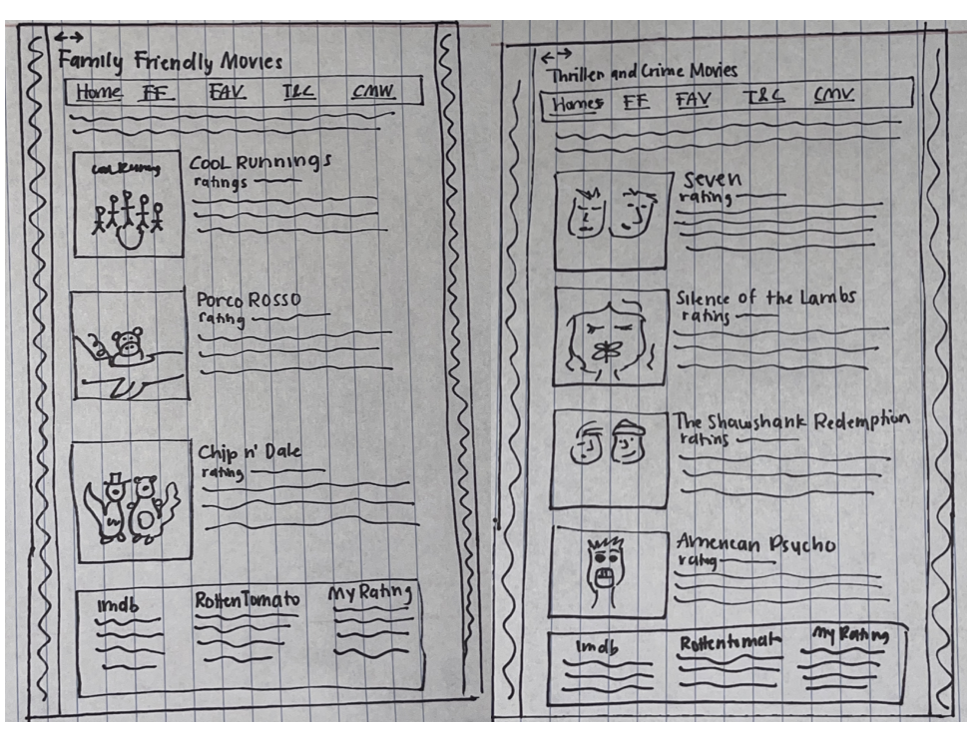 Family Friendly Movies
Home FF FAV T&C CMW
Cool Running
Cool Runnings
ratings
Porco Rosso
rating
Chip n' Dale
rating
Imdb Rotten Tomato My Rating
Thriller and Crime Movies
Homes FF FAV T&C CMV
Seven
rating
Silence of the Lambs
ratins
The Shawshank Redemption
ratins
American Psycho
ratig
Imdb Rottentomat My Rating